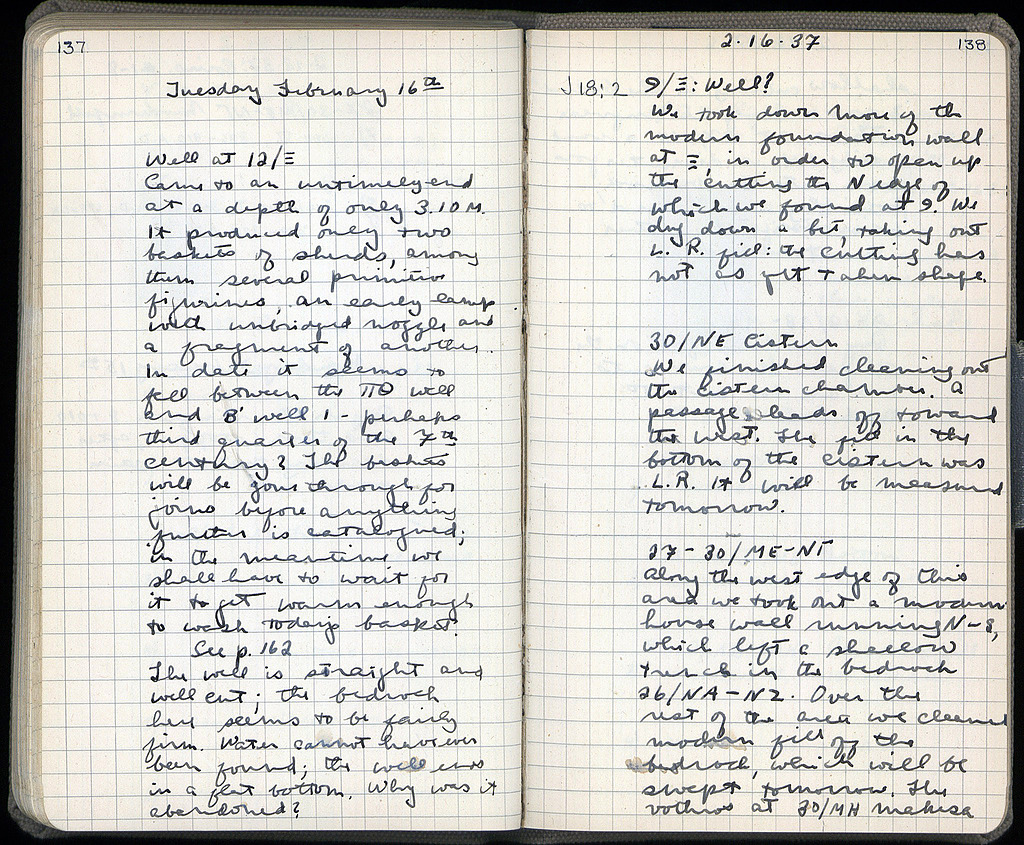 137
Tuesday February 16th
Well at 12/Ξ
Came to an untimely end
at a depth of only 3.10 M.
It produced only two
baskets of sherds, among
them several primitive
figurines, an early lamp
with unbridged nozzle and
a fragment of another.
In date it seems to
fall between the ΠΘ well
and B' well 1 - perhaps
third quarter of the 7th
century? The baskets
will be gone through for
joins before anything
further is catalogued;
in the meantime we
shall have to wait for
it to get warm enough
to wash today's basket.
See p. 162
The well is straight and
well cut; the bedrock
here seems to be fairly
firm. Water cannot have ever
been found; the well ends
in a flat bottom. Why was it
abandoned?
2·16·37
138
J 18:2 9/Ξ: Well?
We took down more of the
modern foundation wall
at Ξ, in order to open up
the cutting the N edge of
which we found at 9. We
dug down a bit, taking out
L.R. fill: the cutting has
not as yet taken shape.
30/NE Cistern
We finished cleaning out
the cistern chamber. A
passage leads off toward
the west. The fill in the
bottom of the cistern was
L.R. It will be measured
tomorrow.
27-30/ME-NΓ
Along the west edge of this
area we took out a modern
house wall running N-S,
which left a shallow
trench in the bedrock
26/NA-NZ. Over the
rest of the area we cleaned
modern fill off the
bedrock, which will be
swept tomorrow. The
vothros at 30/MH makes a